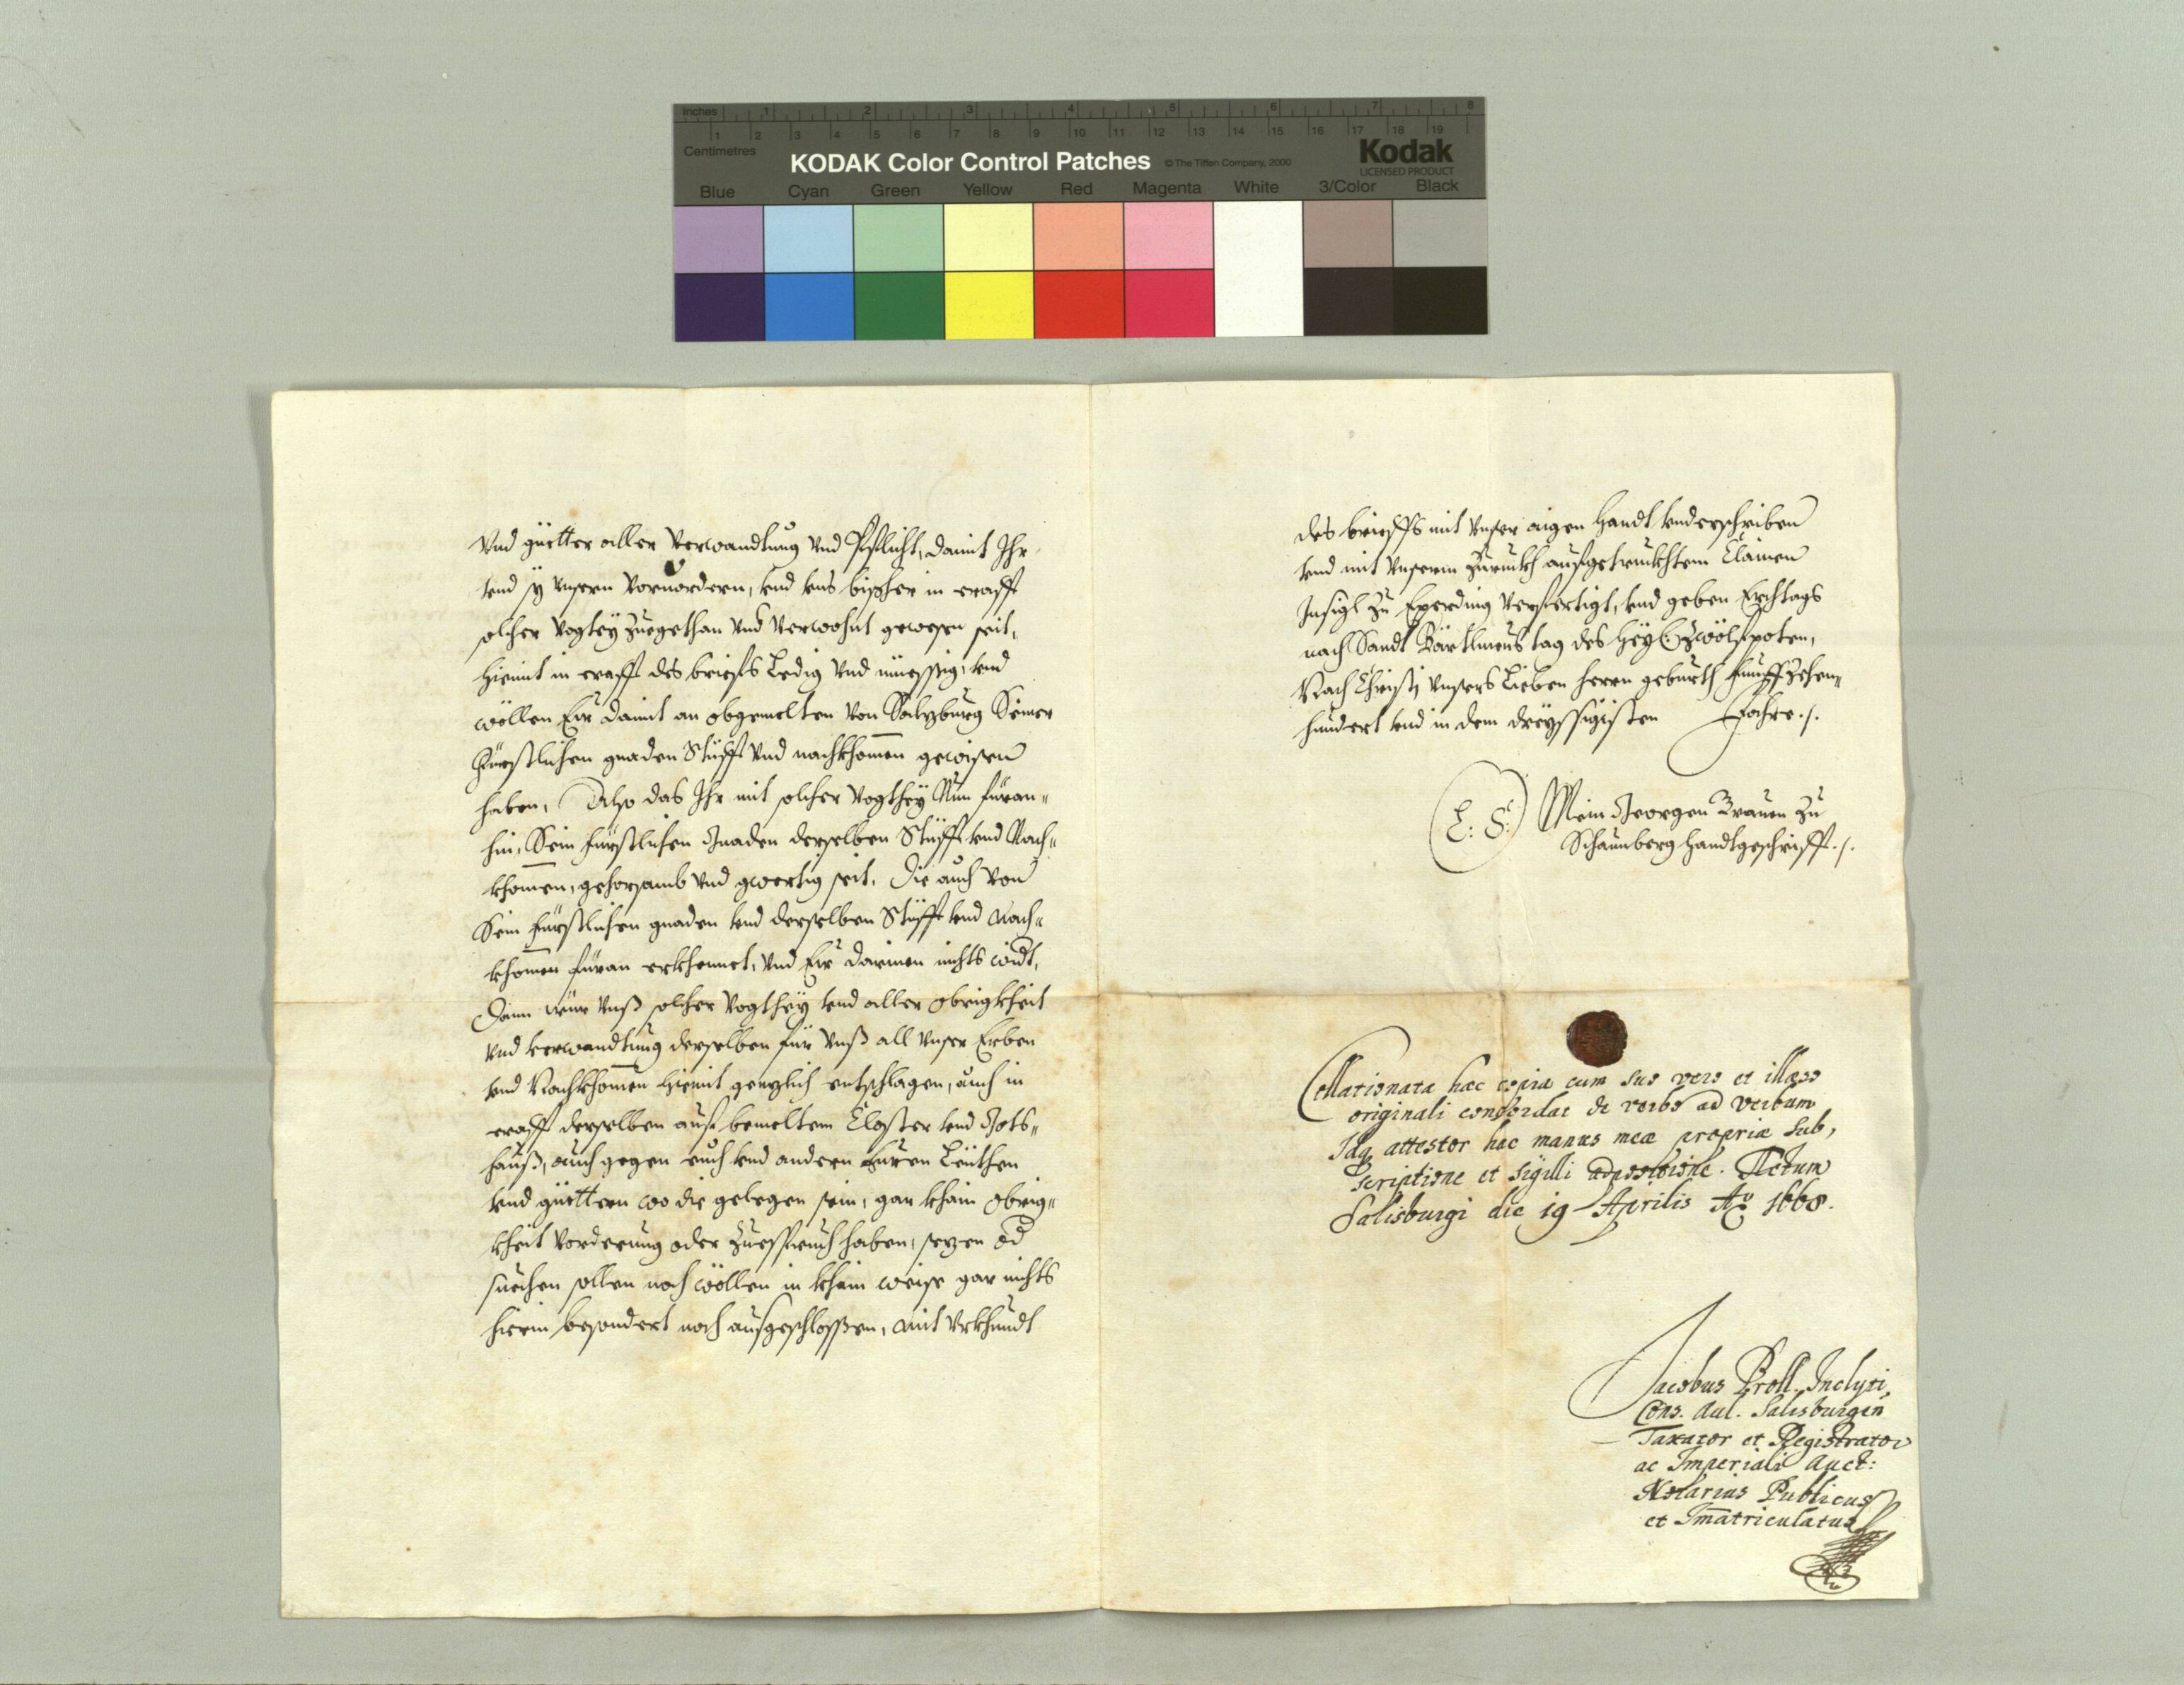 Inches 1 2 3 4 5 6 7 8
1 2 3 4 5 6 7 8 9 10 11 12 13 14 15 16 17 18 19
Centimetres
KODAK Color Control Patches © The Tiffen Company, 2000
Kodak
LICENSED PRODUCT
Blue Cyan Green Yellow Red Magenta White 3/Color Black
Vnd güetter aller Verwandtung Vnd Pflicht, damit Ihr
vnd sÿ Vnsern Voruordern, vnd vns bißher in crafft
solcher Vogteÿ zuegethan Vnd Verwohnt gewesen seit,
hiemit in crafft des brieffs Ledig Vnd müessig, vnd
wöllen Eur damit an obgemelten Von Salzburg Seiner
Fürstlichen gnaden Stüfft Vnd nachkhomen gewisen
haben, Also das Ihr mit solcher Vogtheÿ Nun füran„
hin, Sein Fürstlichen Gnaden derselben Stüfft vnd Nach„
khomen, gehorsamb Vnd gwertig seit, die auch Von
Sein Fürstlichen gnaden vnd derselben Stüfft vnd Nach„
khomen füran erkhennet, Vnd Eur darinen nichts widt,
Dann wür Vnß solcher Vogtheÿ vnd aller obrigkheit
Vnd verwandtung derselben für Vnß all Vnser Erben
vnd Nachkhomen hiemit genzlich entschlagen, auch in
crafft derselben auf bemeltem Closter vnd Gots„
hauß, auch gegen euch vnd andern Euren Leüthen
vnd güettern wo die gelegen sein, gar khain obrig„
kheit Vorderung oder Zuespruch haben, sezen od
suechen sollen noch wöllen in khain weise gar nichts
hierin besondert noch ausgeschlossen, mit Vrkhundt
des brieffs mit Vnser aigen Handt vnderschriben
vnd mit Vnserm Zuruckh aufgetruckhtem Clainen
Insigl zu Eperding Verfertigt, vnd geben Erchtags
nach Sandt Bärtlmeus tag des heÿl: zwölfpoten,
Nach Christj Vnsers Lieben herrn geburth Funffzehen„
hundert vnd in dem dreÿssigisten Jahre ./.
L: S: Mein Georgen Grauen zu
Schaunberg Handtgeschrifft ./.
Collationata hæc copia cum suo vero et illæso
originali concordat de verbo ad verbum
Idq attestor hac manus meæ propriæ sub,
scriptione et sigilli adpositione. Actum
Salisburgi die 19 Aprilis Aō 1668.
Jacobus Proll Inclyti,
Cons. Aul. Salisburgen
Taxator et Registrator
ac Imperiali Auct:
Notarius Publicus
et Im̄atriculatus